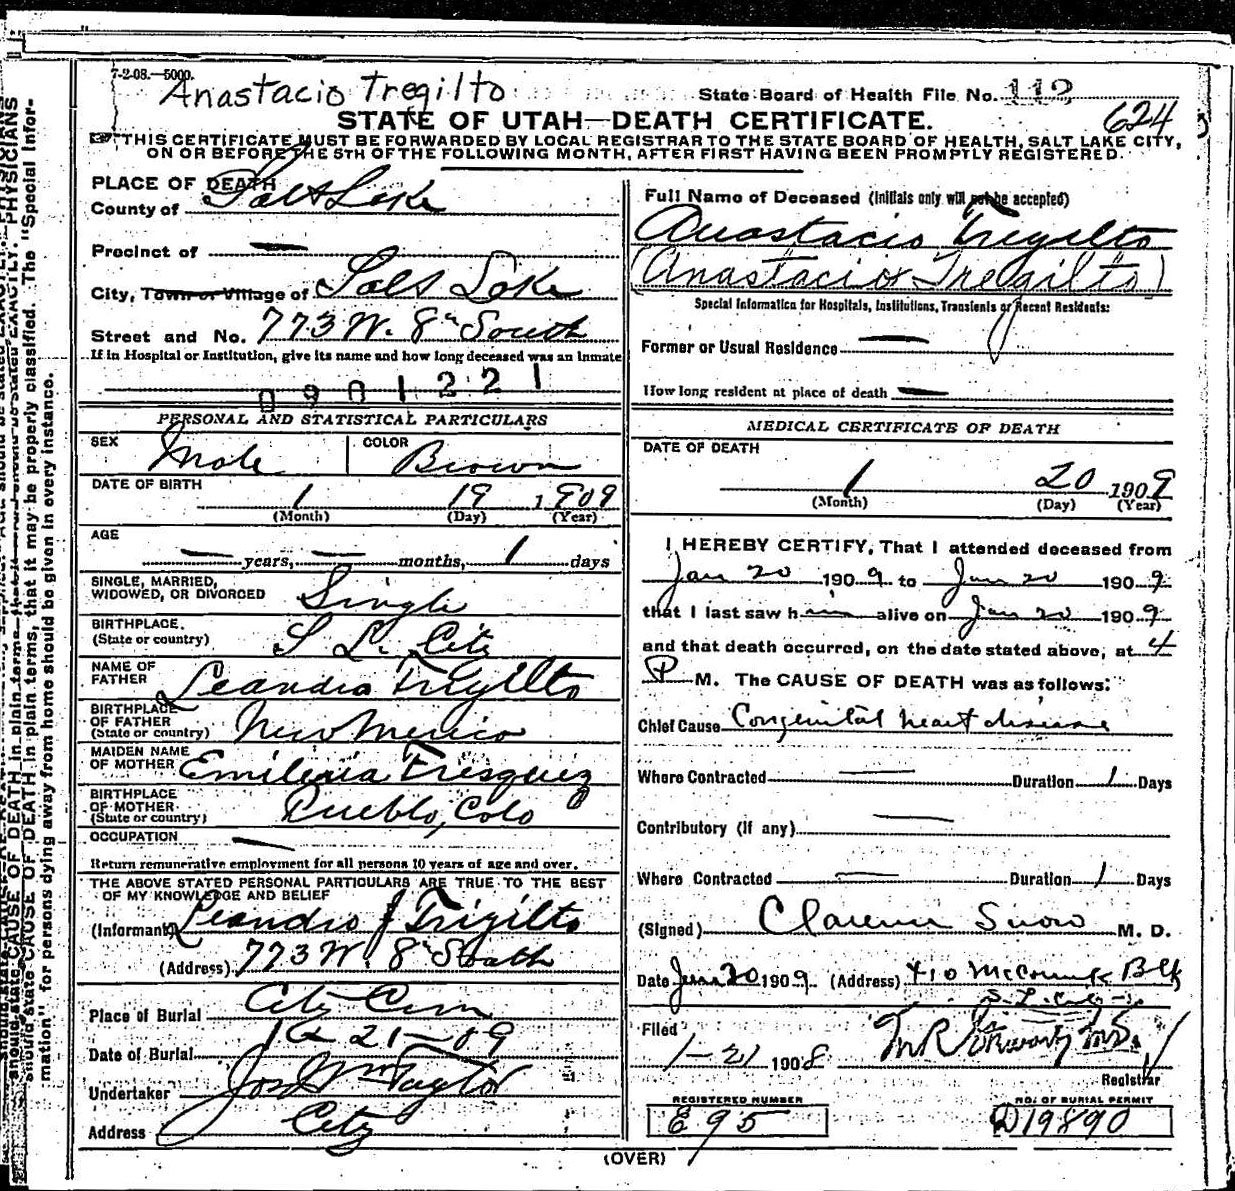 7-2-08.—5000.
Anastacio Tregilto
State Board of Health File No. 112
624
STATE OF UTAH—DEATH CERTIFICATE.
THIS CERTIFICATE MUST BE FORWARDED BY LOCAL REGISTRAR TO THE STATE BOARD OF HEALTH, SALT LAKE CITY,
ON OR BEFORE THE 5TH OF THE FOLLOWING MONTH, AFTER FIRST HAVING BEEN PROMPTLY REGISTERED.
PLACE OF DEATH
County of Salt Lake
Precinct of —
City, Town or Village of Salt Lake
Street and No. 773 W. 8th South
If in Hospital or Institution, give its name and how long deceased was an inmate
0901221
PERSONAL AND STATISTICAL PARTICULARS
SEX Male COLOR Brown
DATE OF BIRTH
1 19 1909
(Month) (Day) (Year)
AGE
— years, — months, 1 days
SINGLE, MARRIED,
WIDOWED, OR DIVORCED Single
BIRTHPLACE.
(State or country) S L. City
NAME OF
FATHER Leandro Trigilto
BIRTHPLACE
OF FATHER
(State or country) New Mexico
MAIDEN NAME
OF MOTHER Emiliria Fresquez
BIRTHPLACE
OF MOTHER
(State or country) Pueblo, Colo
OCCUPATION —
Return remunerative employment for all persons 10 years of age and over.
THE ABOVE STATED PERSONAL PARTICULARS ARE TRUE TO THE BEST
OF MY KNOWLEDGE AND BELIEF
(Informant) Leandro J Trigilto
(Address) 773 W. 8th South
Place of Burial City Cem
Date of Burial 1-21-09
Undertaker Jos Wm Taylor
Address City
Full Name of Deceased (Initials only will not be accepted)
Anastacio Tregilto
(Anastacio Tregilto)
Special Information for Hospitals, Institutions, Transients or Recent Residents:
Former or Usual Residence —
How long resident at place of death —
MEDICAL CERTIFICATE OF DEATH
DATE OF DEATH
1 20 1909
(Month) (Day) (Year)
I HEREBY CERTIFY, That I attended deceased from
Jan 20 1909 to Jan 20 1909
that I last saw him alive on Jan 20 1909
and that death occurred, on the date stated above, at 4
P M. The CAUSE OF DEATH was as follows:
Chief Cause Congenital heart disease
Where Contracted — Duration 1 Days
Contributory (if any) —
Where Contracted — Duration 1 Days
(Signed) Clarence Snow M. D.
Date Jan 20 1909 (Address) 410 McCornick Blk
S. L. City
Filed
1-21 1908
Registrar
REGISTERED NUMBER
E 95
NO. OF BURIAL PERMIT
D19890
(OVER)
should state CAUSE OF DEATH in plain terms, that it may be properly classified. The "Special Infor-
mation" for persons dying away from home should be given in every instance.